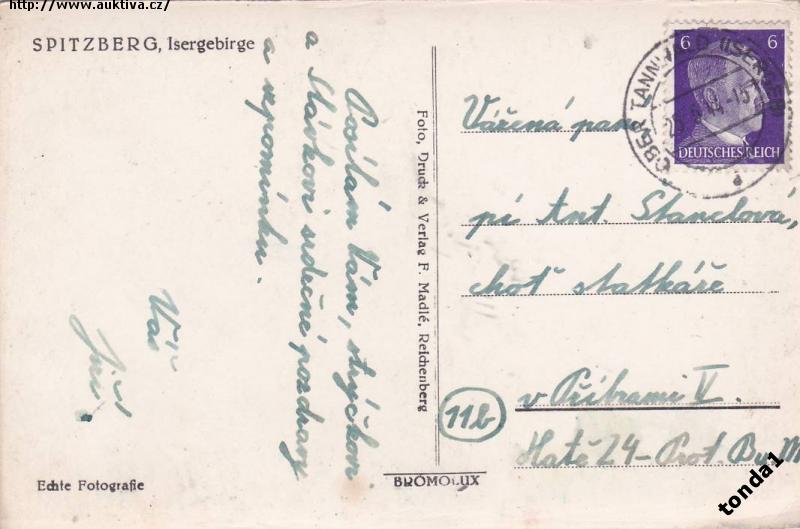 http://www.auktiva.cz/
SPITZBERG, Isergebirge
Posílám Vám, strýčkovi
a Slávkovi srdečné pozdravy
a vzpomínku.
Váš
Jiří.
Echte Fotografie
Foto, Druck & Verlag F. Madlé, Reichenberg
BROMOLUX
6 6
DEUTSCHES REICH
OBER TANNWALD (ISERGEB)
Vážená paní
pí Ant. Stanclová,
choť statkáře
11b
v Příbrami V.
Hatě 24 - Prot.
tonda1